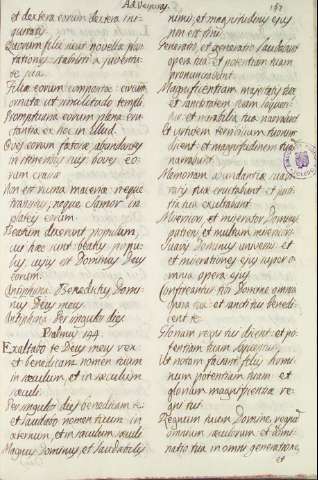 Ad Vesperas
157
et dextera eorum dextera ini-
quitatis
Quorum filii sicut novella plan
tationes stabilita a juventu-
te sua.
Filiæ eorum compositæ circum
ornatæ ut similitudo templi.
Promptuaria eorum plena eruc-
tantia ex hoc in illud.
Oves eorum fœtosæ abundantes
in itineribus suis boves eo-
rum crassæ
Non est ruina maceria neque
transitus, neque clamor in
plateis eorum.
Beatum dixerunt populum,
cui hæc sunt beatus popu-
lus cujus est Dominus Deus
eorum.
Antiphona Benedictus Domi-
nus Deus meus
Antiphona Per singulos dies
Psalmus 144.
Exaltabo te Deus meus rex
et benedicam nomen tuum
in sæculum, et in sæculum
sæculi
Per singulos dies benedicam te:
et laudabo nomen tuum in
sæculum, et in sæculum sæculi
Magnus Dominus, et laudabilis
nimis, et magnitudinis ejus
non est finis
Generatio, et generatio laudabit
opera tua: et potentiam tuam
pronunciabunt.
Magnificentiam majestatis tuæ
et sanctitatem tuam loquen-
tur et mirabilia tua narrabunt
Et virtutem terribilium tuorum
dicent et magnitudinem tuam
narrabunt
Memoriam abundantiæ sua-
vitatis tuæ eructabunt et justi-
tia tua exultabunt
Miserator, et misericors Dominus
patiens et multum misericors.
Suavis Dominus universis et
et miserationes ejus super o-
mnia opera ejus
Confiteantur tibi Domine omnia
opera tua: et sancti tui benedi-
cant te
Gloriam regni tui dicent: et po-
tentiam tuam loquentur
Ut notam faciant filiis homi-
num potentiam tuam et
gloriam magnificentiæ re-
gni tui
Regnum tuum Domine, regnum
omnium sæculorum et domi-
natio tua in omni generatione,
et